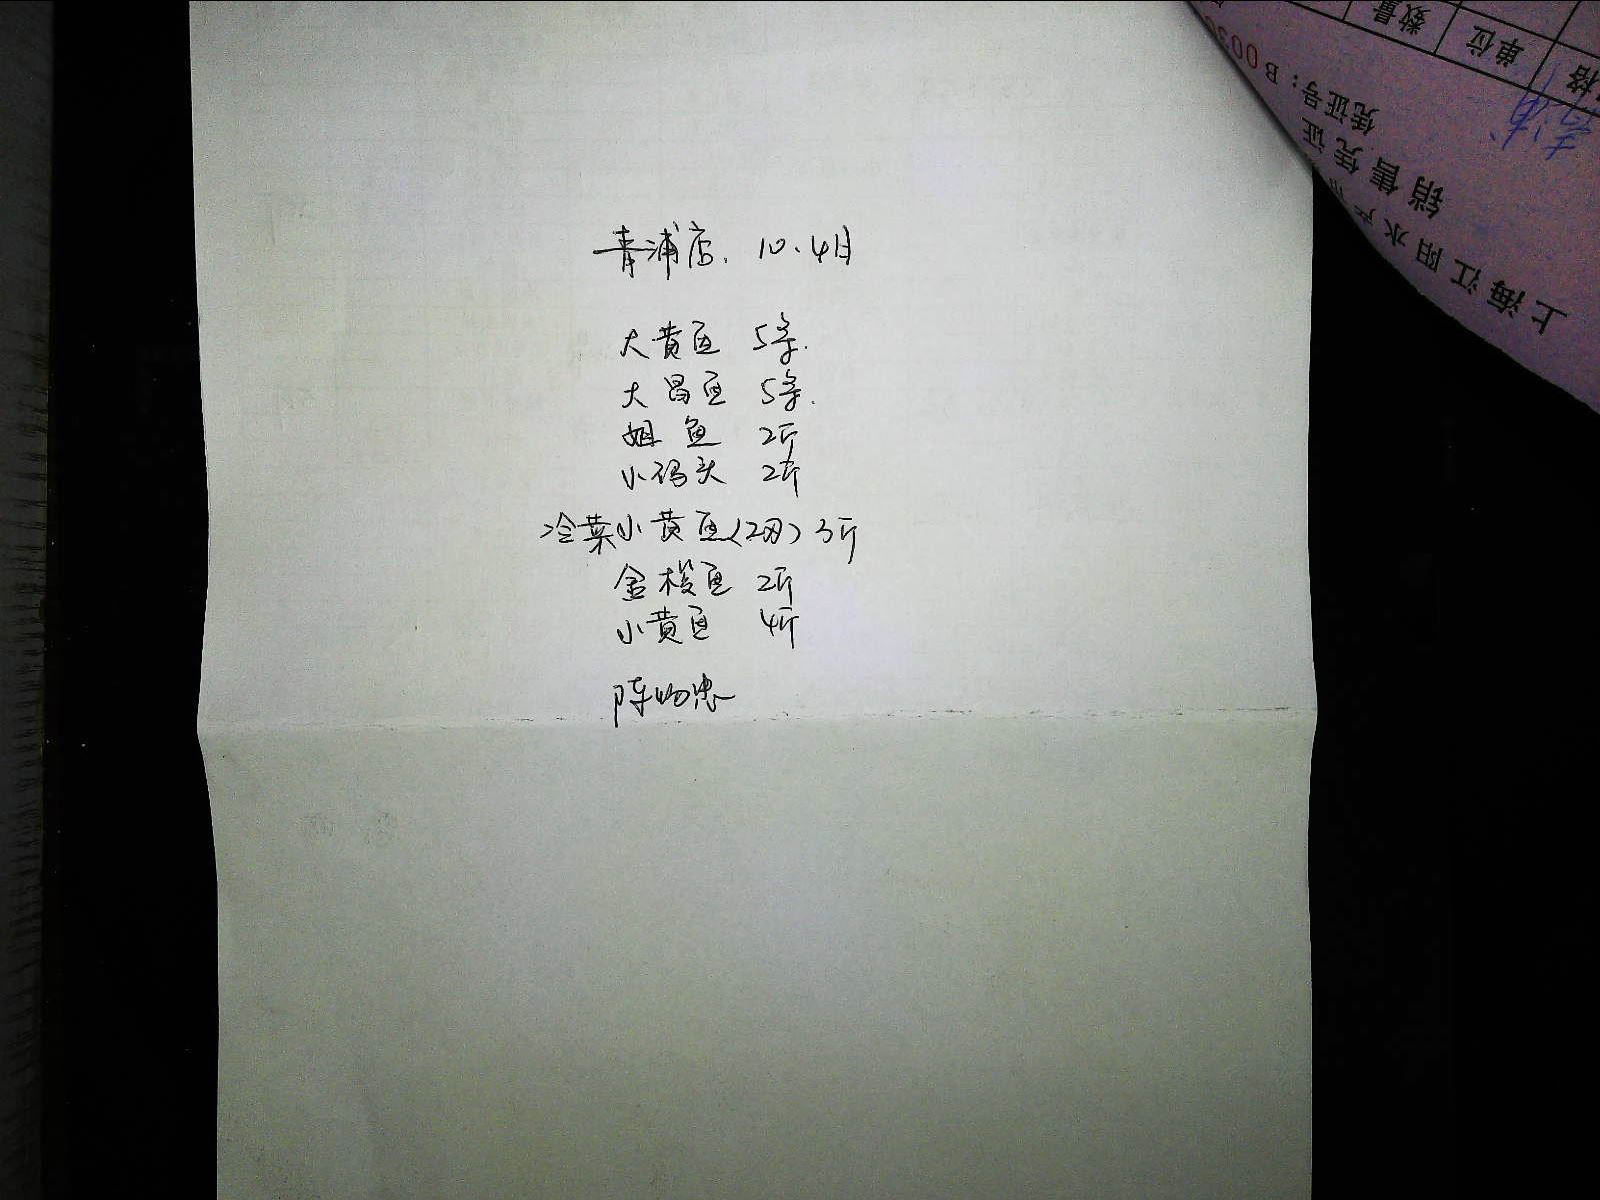 青浦店. 10.4日
大黄鱼 5条.
大昌鱼 5条.
鱼 2斤
小码头 2斤
冷菜小黄鱼(2两) 3斤
金梭鱼 2斤
小黄鱼 4斤
陈
上海江阳水产
销售凭证
凭证号: B003
青浦
格 单位 数量